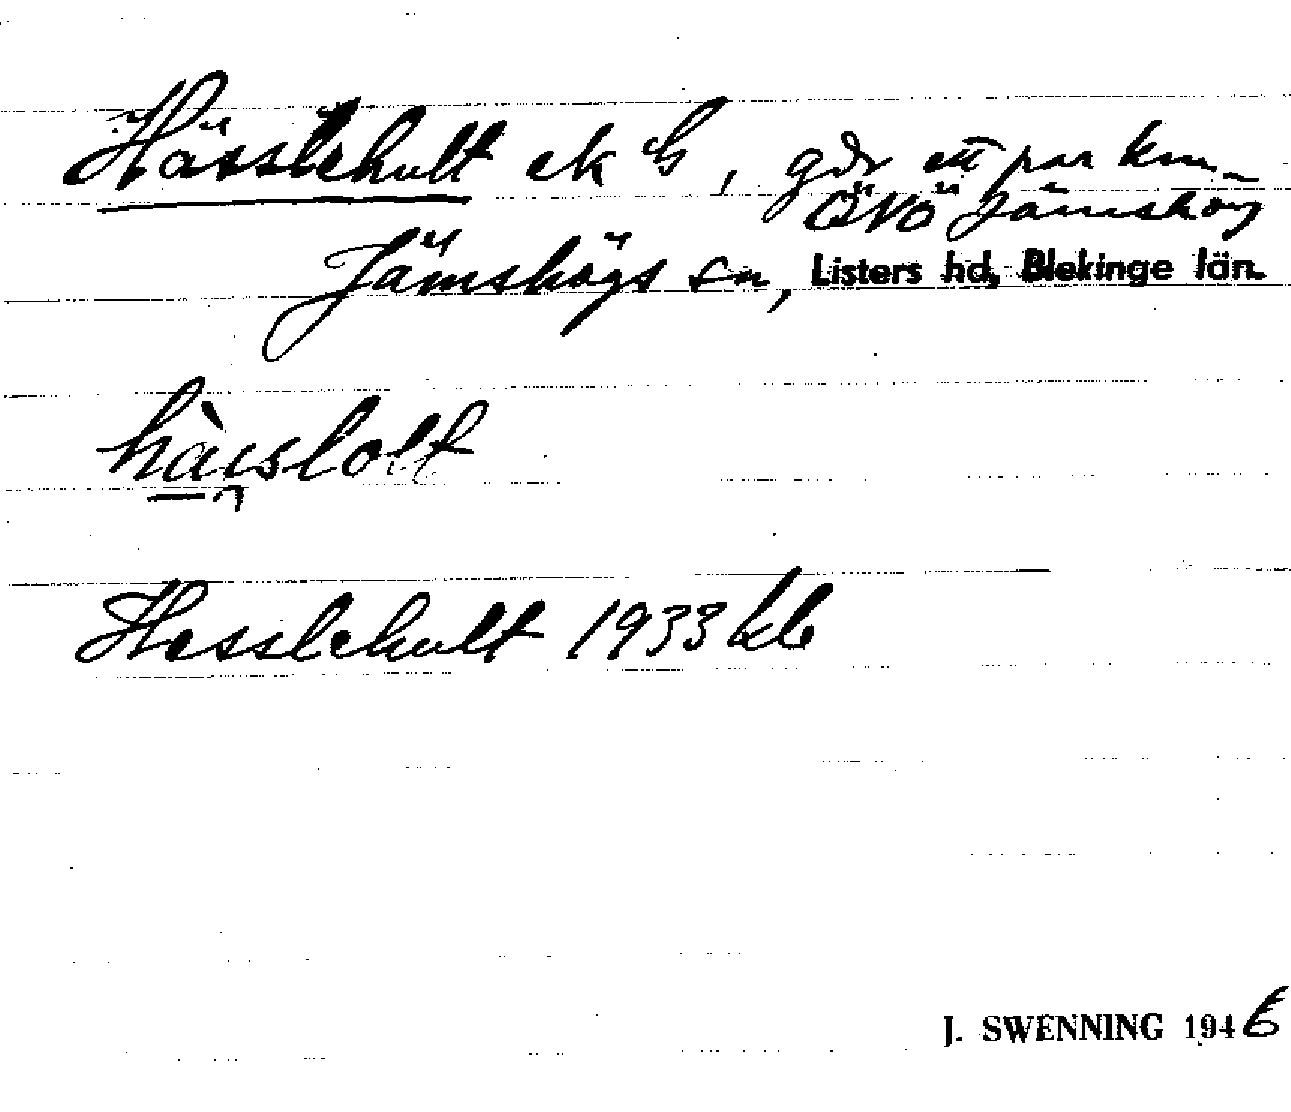 Hässlehult ek G, går ett par km
ÖNÖ Jämshög
Jämshögs sn, Listers hd, Blekinge län.
hàslolt
Hesslehult 1933 kb
J. SWENNING 1946